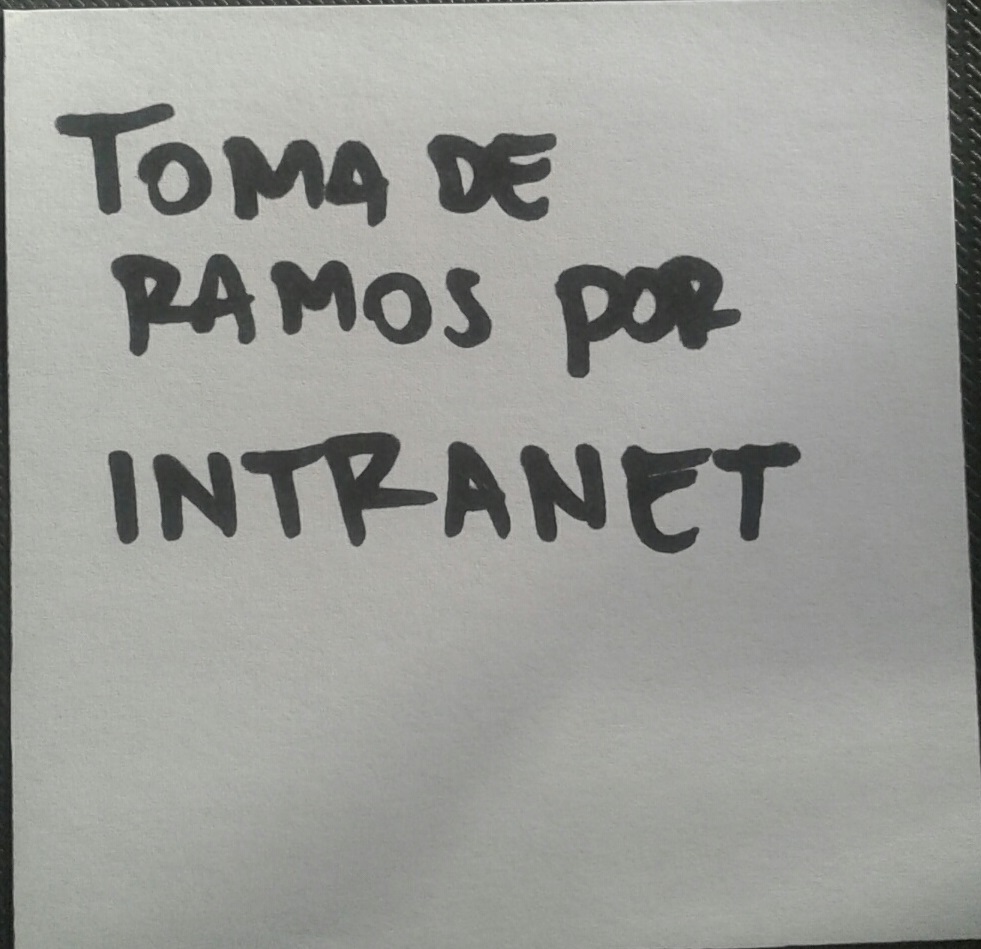 TOMA DE
RAMOS POR
INTRANET